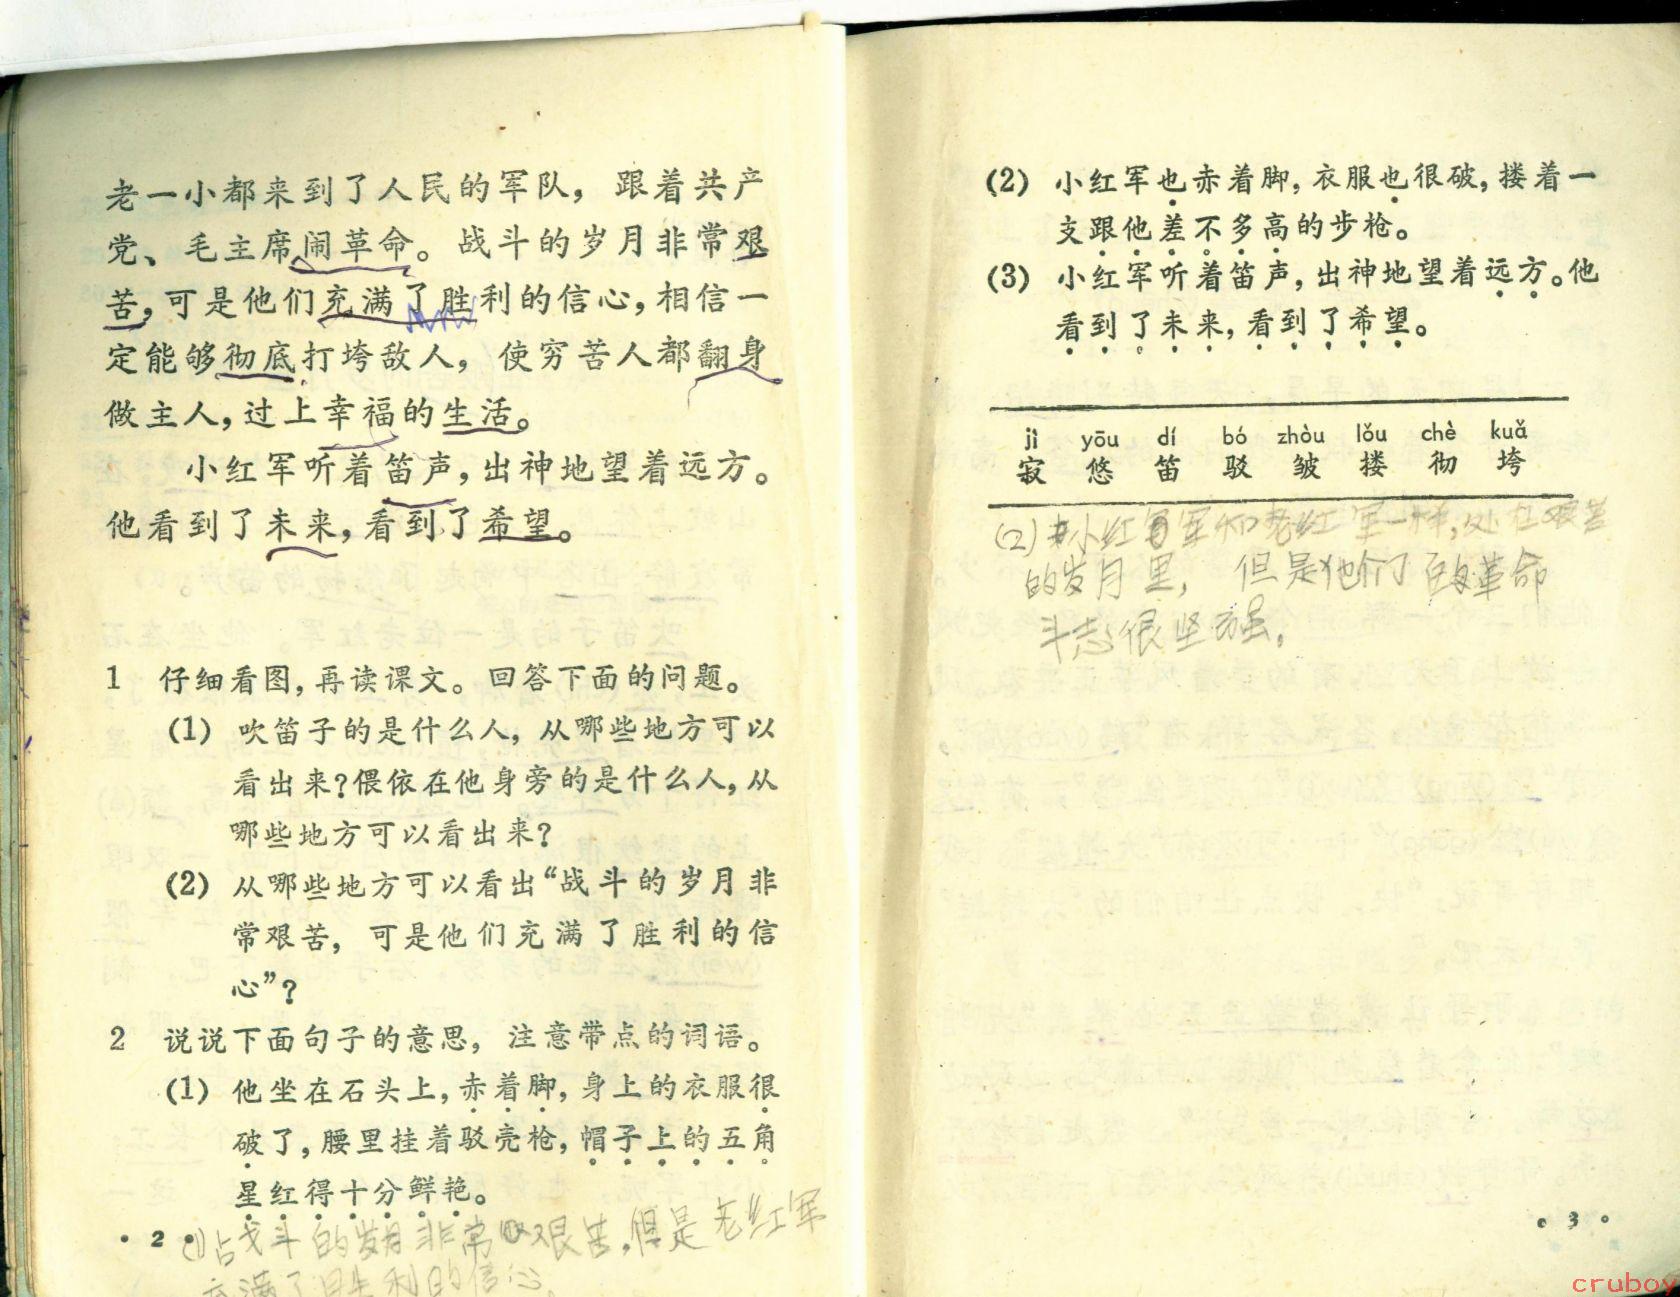 老一小都来到了人民的军队，跟着共产
党、毛主席闹革命。战斗的岁月非常艰
苦，可是他们充满了胜利的信心，相信一
定能够彻底打垮敌人，使穷苦人都翻身
做主人，过上幸福的生活。
小红军听着笛声，出神地望着远方。
他看到了未来，看到了希望。
1 仔细看图，再读课文。回答下面的问题。
(1) 吹笛子的是什么人，从哪些地方可以
看出来？偎依在他身旁的是什么人，从
哪些地方可以看出来？
(2) 从哪些地方可以看出“战斗的岁月非
常艰苦，可是他们充满了胜利的信
心”？
2 说说下面句子的意思，注意带点的词语。
(1) 他坐在石头上，赤着脚，身上的衣服很
破了，腰里挂着驳壳枪，帽子上的五角
星红得十分鲜艳。
(1)战斗的岁月非常艰苦，但是老红军
充满了胜利的信心。
· 2 ·
(2) 小红军也赤着脚，衣服也很破，搂着一
支跟他差不多高的步枪。
(3) 小红军听着笛声，出神地望着远方。他
看到了未来，看到了希望。
jì yōu dí bó zhòu lǒu chè kuǎ
寂 悠 笛 驳 皱 搂 彻 垮
(2)小红军和老红军一样，处在艰苦
的岁月里，但是他们的革命
斗志很坚强。
· 3 ·
cruboy